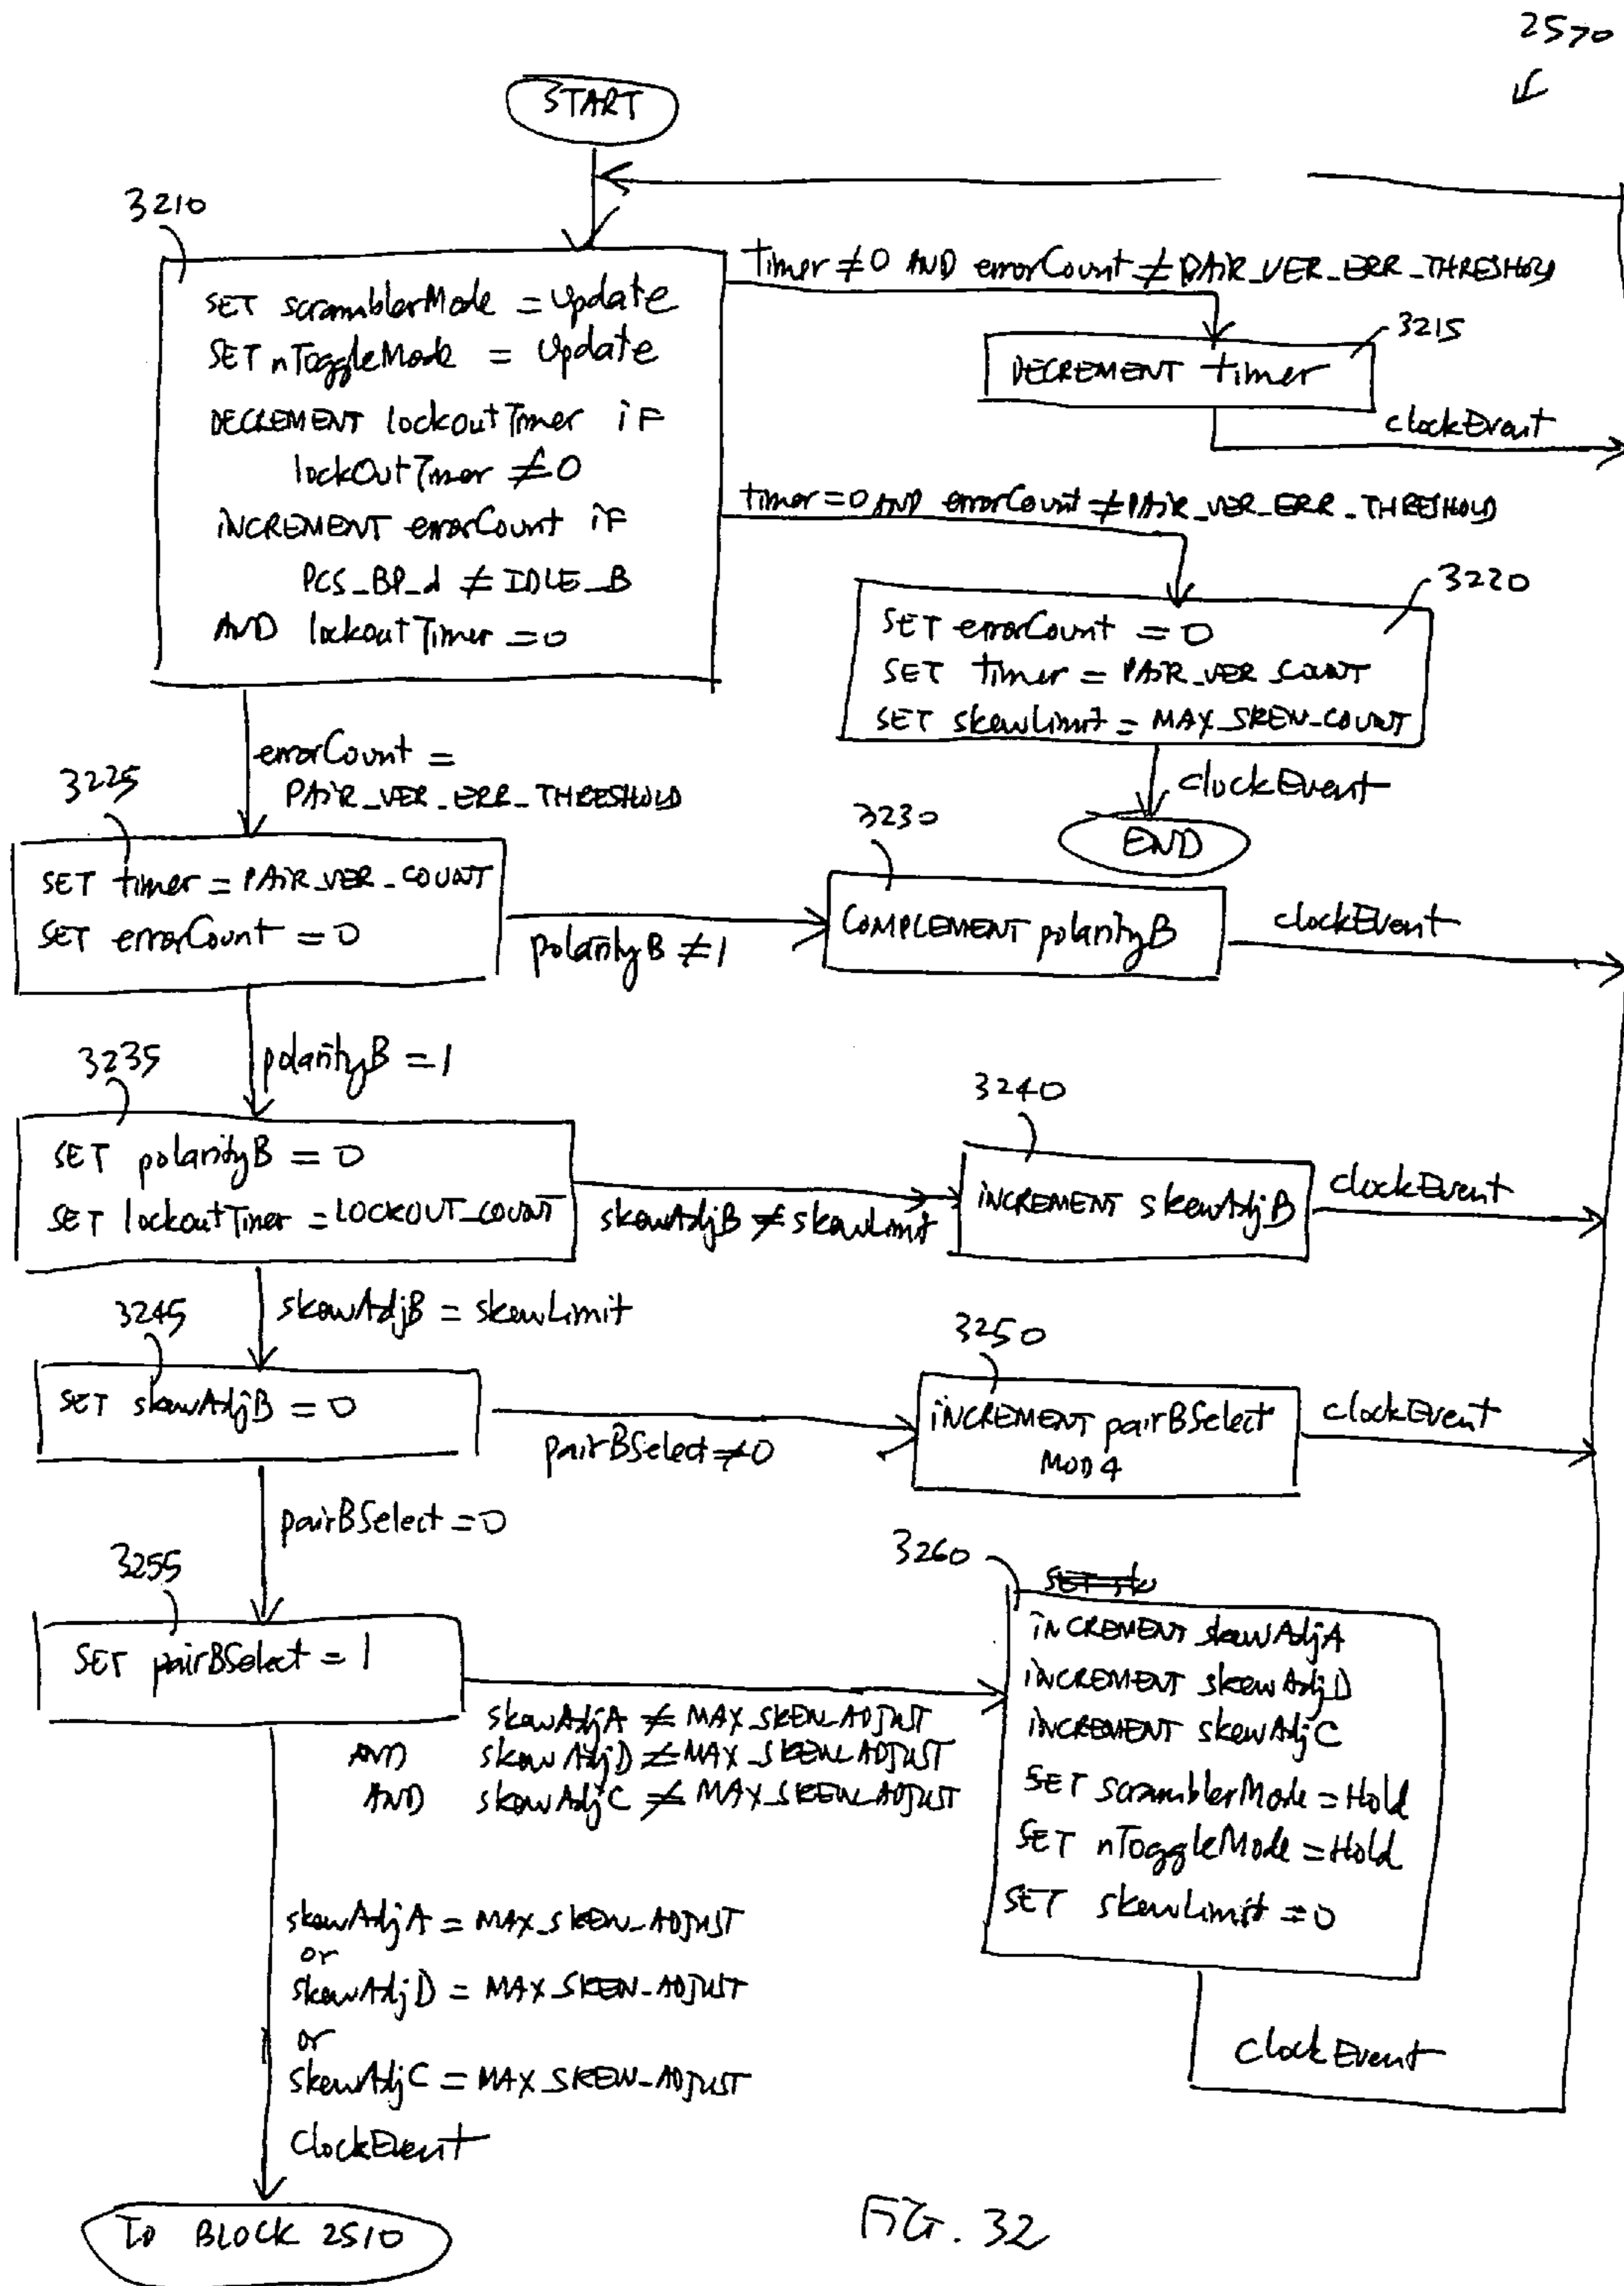 2570
START
3210
SET scramblerMode = Update
SET nToggleMode = Update
DECREMENT lockoutTimer iF
lockOutTimer ≠ 0
iNCREMENT errorCount iF
PCS_BP_d ≠ IDLE_B
AND lockoutTimer = 0
timer ≠ 0 AND errorCount ≠ PAiR_VER_ERR_THRESHOLD
3215
DECREMENT timer
clockEvent
timer = 0 AND errorCount ≠ PAiR_VER_ERR_THRESHOLD
3220
SET errorCount = 0
SET timer = PAiR_VER_COUNT
SET skewLimit = MAX_SKEW-COUNT
clockEvent
END
errorCount =
PAiR_VER_ERR_THRESHOLD
3225
SET timer = PAiR_VER_COUNT
SET errorCount = 0
polarityB ≠ 1
3230
COMPLEMENT polarityB
clockEvent
polarityB = 1
3235
SET polarityB = 0
SET lockoutTimer = LOCKOUT_COUNT
skewAdjB ≠ skewLimit
3240
iNCREMENT skewAdjB
clockEvent
skewAdjB = skewLimit
3245
SET skewAdjB = 0
pairBSelect ≠ 0
3250
iNCREMENT pairBSelect
MOD 4
clockEvent
pairBSelect = 0
3255
SET pairBSelect = 1
skewAdjA ≠ MAX_SKEW_ADJUST
AND skewAdjD ≠ MAX_SKEW_ADJUST
AND skewAdjC ≠ MAX_SKEW_ADJUST
3260
SET sk
iNCREMENT skewAdjA
iNCREMENT skewAdjD
iNCREMENT skewAdjC
SET scramblerMode = Hold
SET nToggleMode = Hold
SET skewLimit = 0
clockEvent
skewAdjA = MAX_SKEW_ADJUST
or
skewAdjD = MAX_SKEW-ADJUST
or
skewAdjC = MAX_SKEW-ADJUST
clockEvent
TO BLOCK 2510
FIG. 32